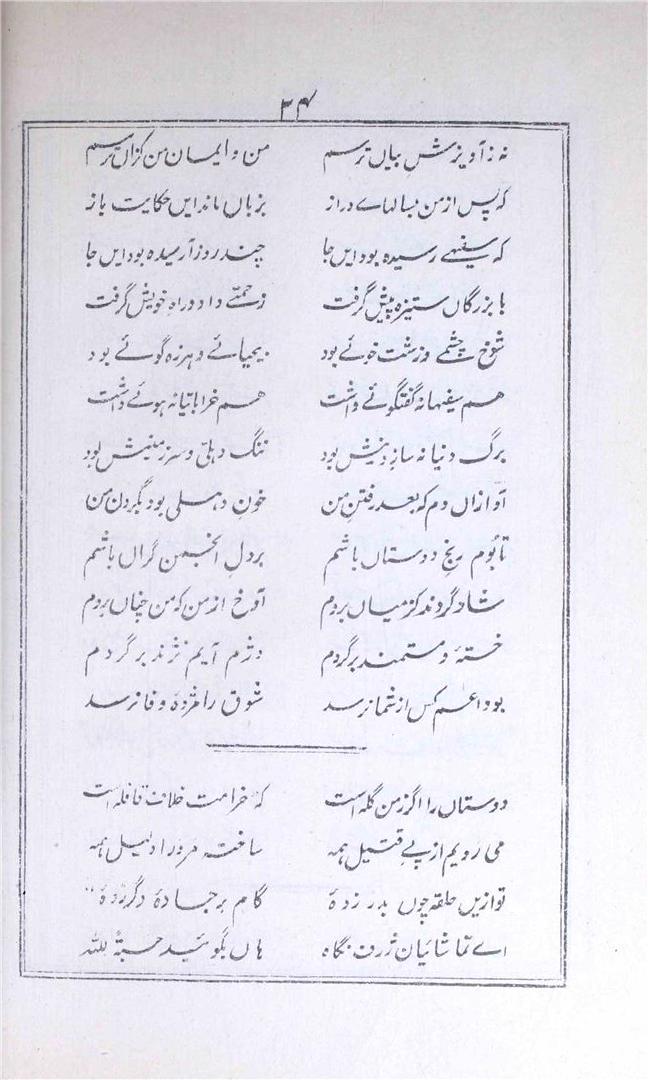 ۳۴
نہ ز آویزش بیاں ترسم من و ایمان من کزاں ترسم
کہ پس از من بسالہاے دراز بزباں ماند ایں حکایت باز
کہ سفیہے رسیدہ بود ایں جا چند روز آرمیدہ بود ایں جا
با بزرگاں ستیزہ پیش گرفت زحمتے داد و راہ خویش گرفت
شوخ چشمے و زشت خوئے بود بیحیائے و ہرزہ گوئے بود
ہم سفیہانہ گفتگوئے داشت ہم خراباتیانہ ہوئے داشت
برگ دنیا نہ ساز دینش بود ننگ دہلی و سرزمینش بود
آہ ازاں دم کہ بعد رفتن من خون دہلی بود بگردن من
تا بوم رنج دوستاں باشم بر دل انجمن گراں باشم
شاد گردند کز میاں بردم آوخ از من کہ من چناں بردم
خستۂ و مستمند برگردم دژم آیم نژند برگردم
بوداعم کس از شما نرسد شوق را مژدۂ وفا نرسد
دوستاں را اگر ز من گلہ است کہ خرامت خلاف قافلہ است
می رویم از پے قتیل ہمہ ساختہ مر ورا دلیل ہمہ
تو ازیں حلقہ چوں بدر زدۂ گام بر جادۂ دگر زدۂ
اے تماشائیان ژرف نگاہ ہاں بگوئید حسبۃً للہ